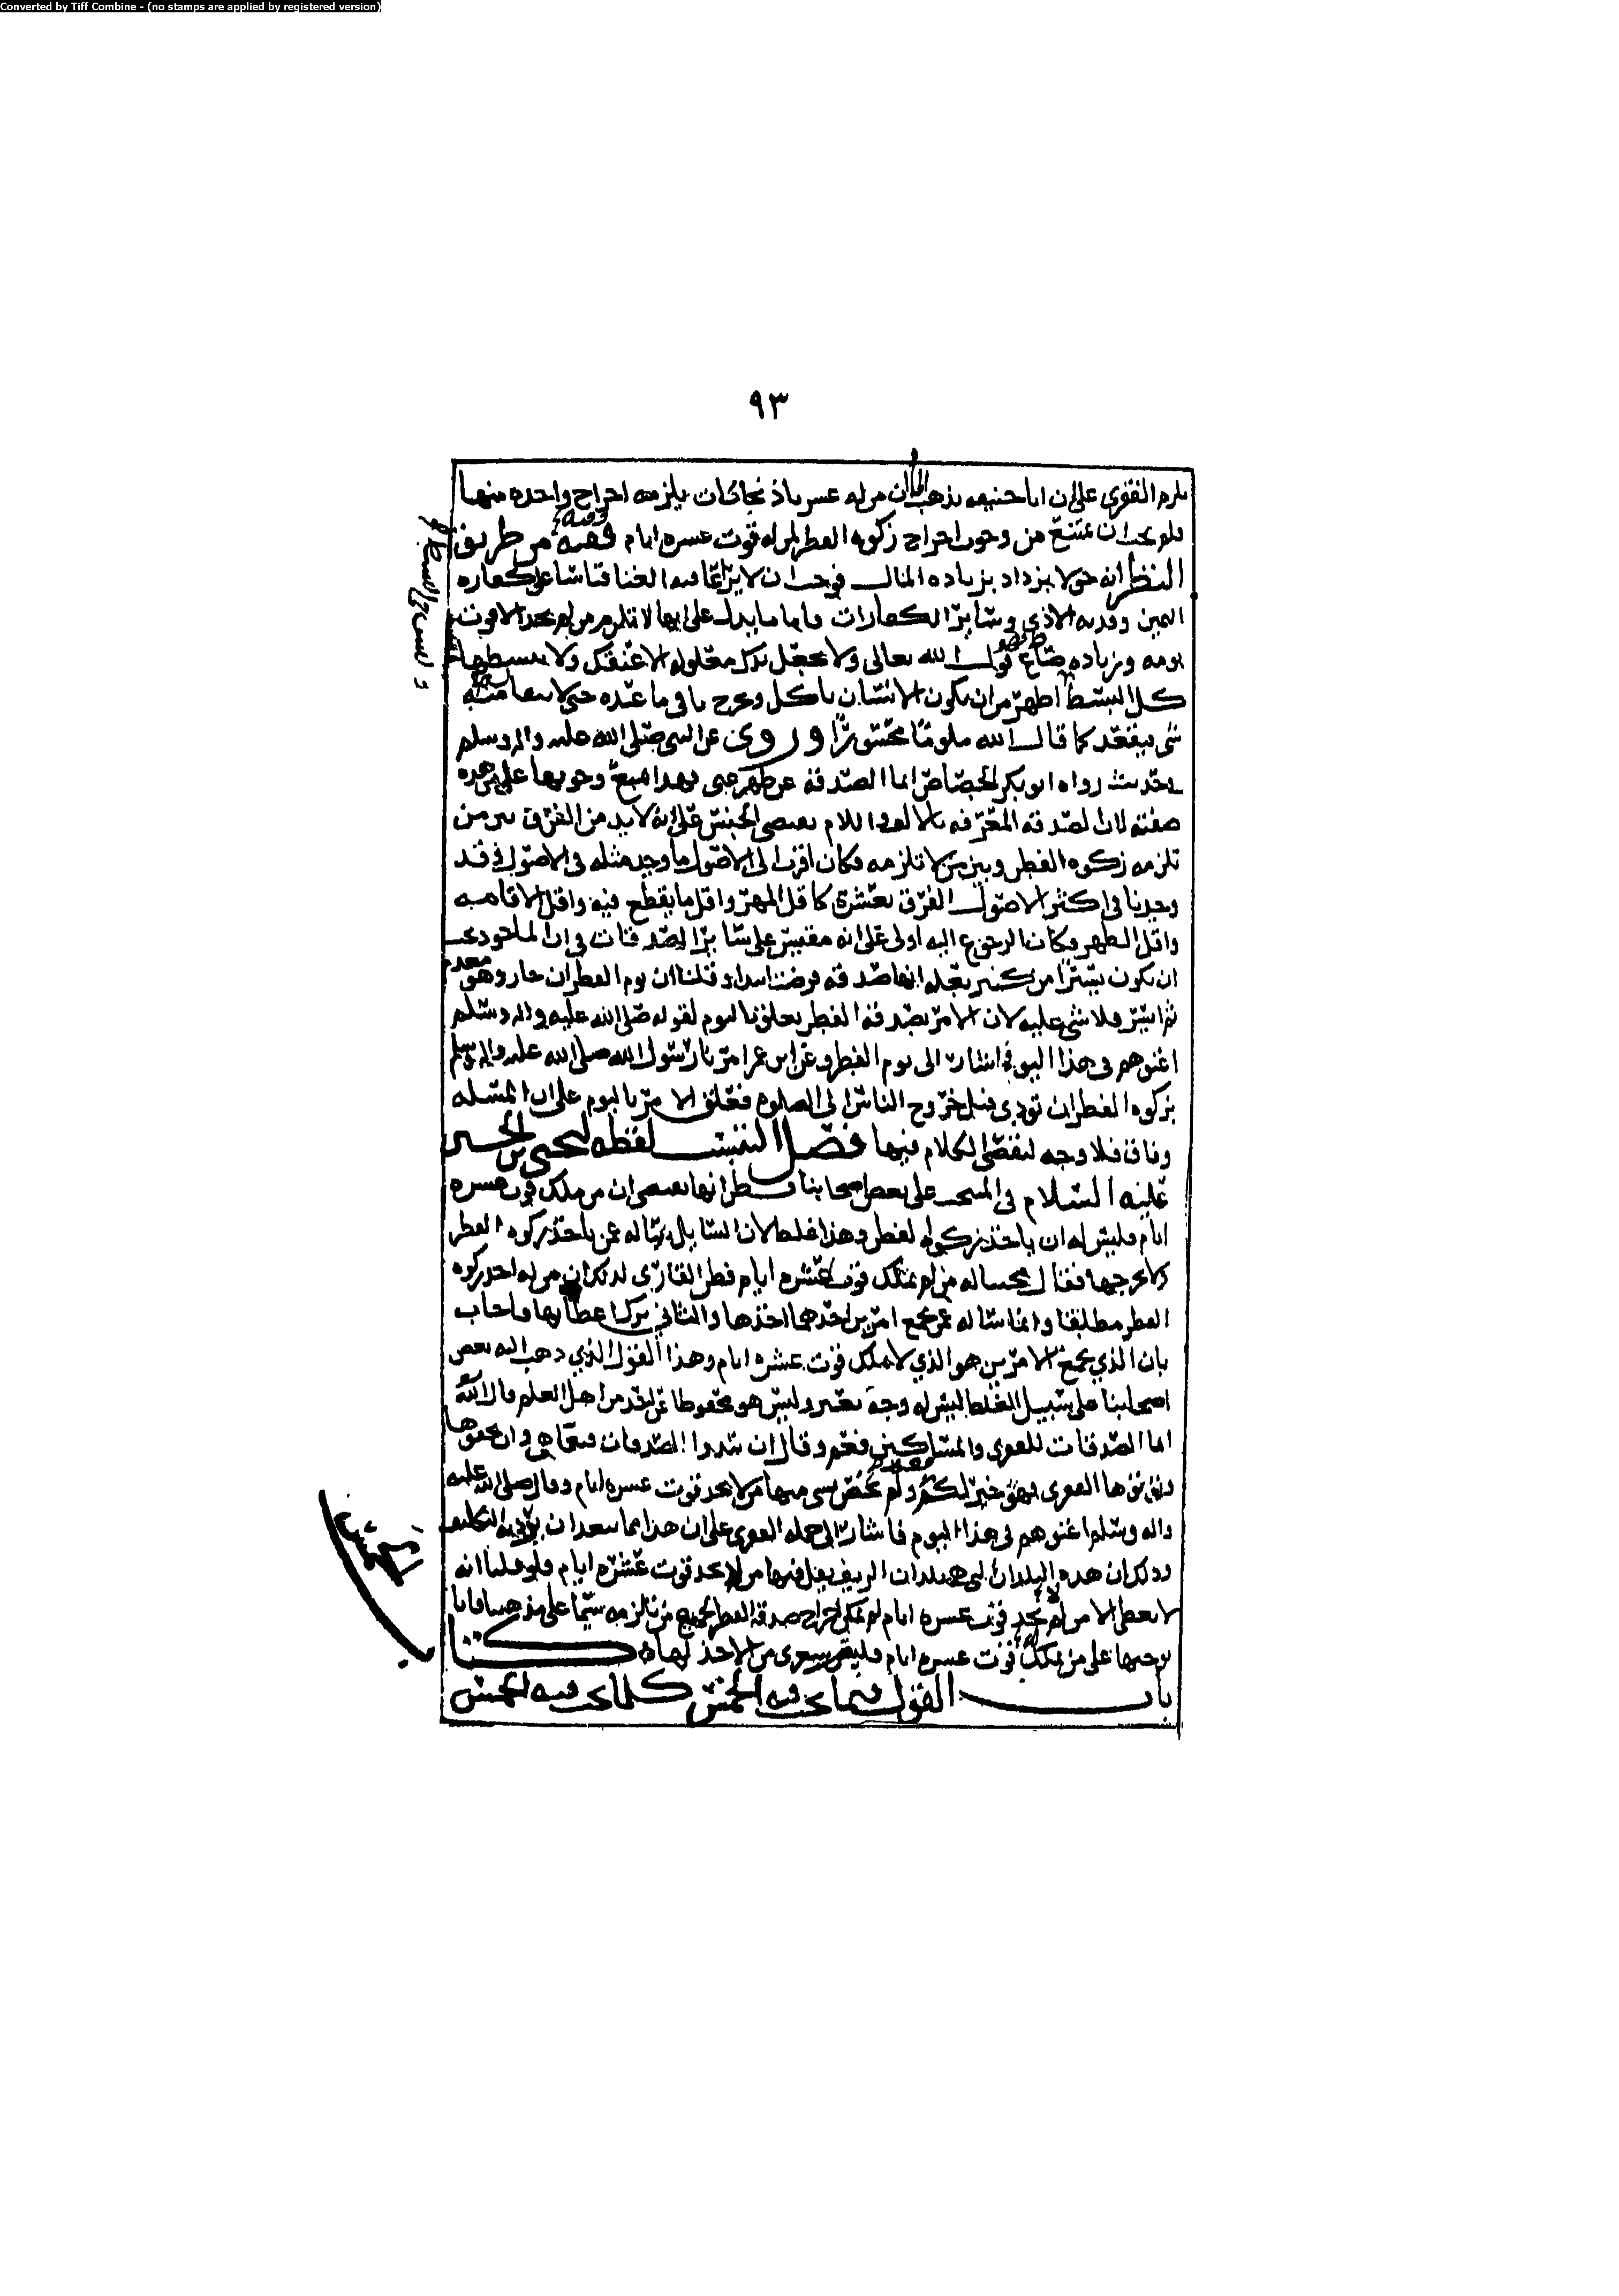 Converted by Tiff Combine - (no stamps are applied by registered version)
٩٣
يلزم الفقرى على ان ابا حنيفه يذهب الى ان من له عسر باذنجانات يلزمه اخراج واحده منها
فلم يجب ان يمتنع من وجوب اخراج زكوه الفطر لمن له قوت عسره ايام وفيه من طريق
النظر انه حق لا يزداد بزياده المال فوجب ان لا يراعا فيه الغنا قياسا على كفاره
اليمين وفديه الاذى وسائر الكفارات واما ما يدل على انها لا تلزم من لم يجد الا قوت
يومه وزياده صاع قول الله تعالى ولا تجعل يدك مغلوله الى عنقك ولا تبسطها
كل البسط اظهر من ان يكون الانسان ياكل ويخرج باقى ما عنده حتى لا يبقا منه
شى فيقعد كما قال الله ملوما محسورا وروى عن النبى صلى الله عليه واله وسلم
بحديث رواه ابو بكر الجصاص انما الصدقه عن ظهر غنى فهذا يمنع وجوبها على من هذه
صفته لان الصدقه المعرفه بالالف واللام يعنى الجنس على انه لا بد من الفرق بين من
تلزمه زكوه الفطر وبين من لا تلزمه فكان اقرب الى الاصول ما وجد مثله فى الاصول وقد
وجدنا فى اكثر الاصول الفرق بعشره كاقل المهر واقل ما يقطع فيه واقل الاقامه
واقل الطهر فكان الرجوع اليه اولى على انه مقيس على سائر الصدقات فى ان الماخوذ يجب
ان يكون يسيرا من كثير بعله انها صدقه فرضت ابتدا وقلنا ان يوم الفطر ان جاز وهو معدم
ثم ايسر فلا شى عليه لان الامر بصدقه الفطر تعلق باليوم لقوله صلى الله عليه واله وسلم
اغنوهم فى هذا اليوم فاشار الى يوم الفطر وعن ابن عمر امر نا رسول الله صلى الله عليه واله وسلم
بزكوه الفطر ان تودى قبل خروج الناس الى الصلوه فعلق الامر باليوم على ان المسله
وفاق فلا وجه لتقصى الكلام فيها فصل التبست لفظه ليحيى بن الحسين
عليه السلام فى المنتخب على بعض اصحابنا فظن انها تقتضى ان من ملك قوت عسره
ايام فليس له ان ياخذ زكوه الفطر وهذا غلط لان السايل ساله عمن ياخذ زكوه الفطر
ولا يخرجها فقال مجيبا له من لم يملك قوت عشره ايام فظن القارى لذلك ان من له اخذ زكوه
الفطر مطلقا وانما ساله عمن يجمع امرين احدهما اخذها والثانى ترك اعطايها فاجاب
بان الذي يجمع الامرين هو الذي لا يملك قوت عشره ايام وهذا القول الذي ذهب اليه بعض
اصحابنا على سبيل الغلط ليس له وجه يعتبر وليس هو محفوظا عن احد من اهل العلم قال الله
انما الصدقات للفقرى والمساكين فعم وقال ان تبدوا الصدقات فنعما هى وان تخفوها
وتوتوها الفقرى فهو خير لكم ولم يخص بشى منها من لا يجد قوت عسره ايام وقال صلى الله عليه
واله وسلم اغنوهم فى هذا اليوم فاشار الى جمله الفقرى على ان هذا مما يبعد ان يودى به التكليف
وذلك ان هذه البلدان التى هى بلدان الريف يقل فيها من لا يجد قوت عشره ايام فلو قلنا انه
لا يعطى الا من لم يجد قوت عسره ايام لم يمكن اخراج صدقه الفطر لجميع من تلزمه سيما على مذهبنا فانا
نوجبها على من يملك قوت عسره ايام
باب القول فيما يجب فيه الخمس كلما يجب فيه الخمس